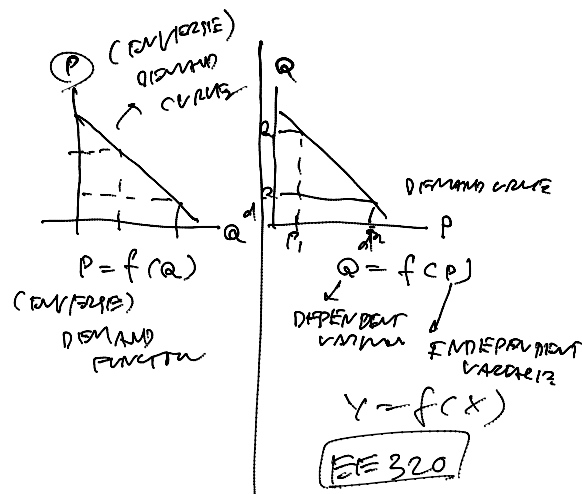 P
(INVERSE)
DEMAND
CURVE
Q
P = f(Q)
(INVERSE)
DEMAND
FUNCTION
Q
P₁
P
DEMAND CURVE
Q = f(P)
DEPENDENT
INDEPENDENT
VARIABLE
Y = f(X)
EE 320